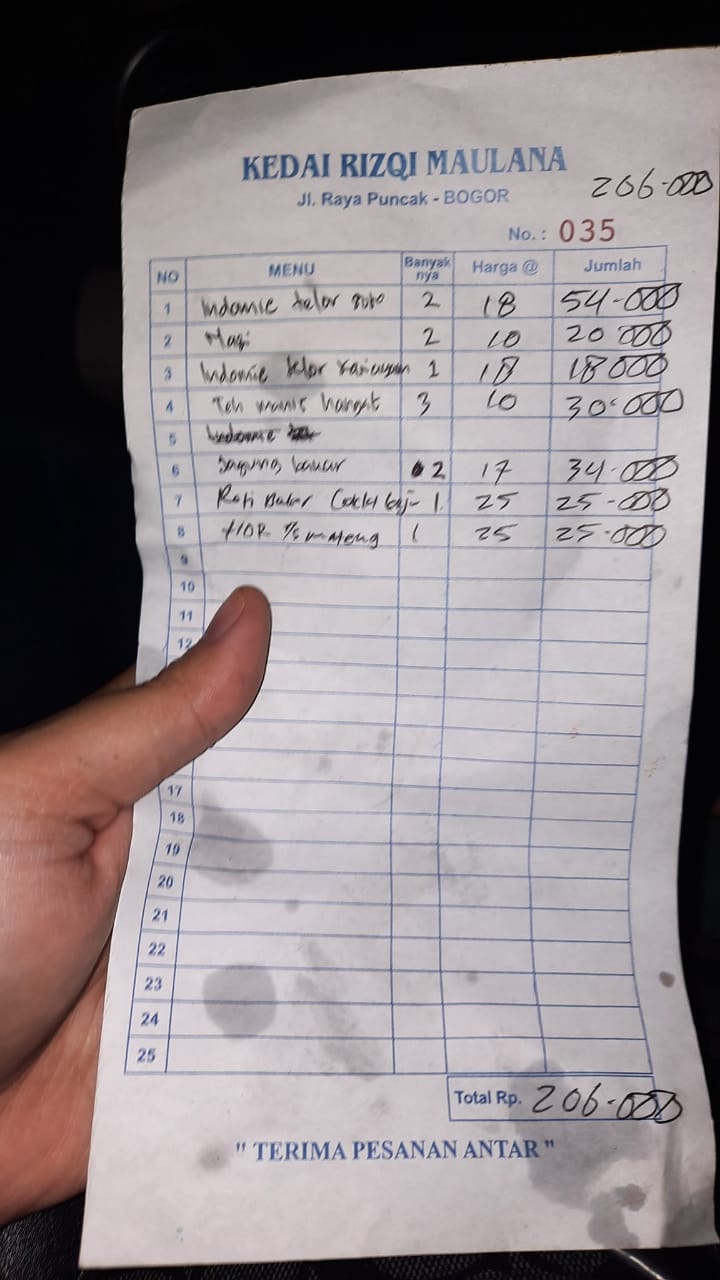 KEDAI RIZQI MAULANA
206-000
Jl. Raya Puncak - BOGOR
No. : 035
NO MENU Banyak nya Harga @ Jumlah
1 Indomie telor soto 2 18 54-000
2 Nasi 2 10 20 000
3 Indomie telor 1 18 18000
4 Teh manis hangat 3 10 30-000
5 Indomie
6 Jagung bakar 2 17 34-000
7 Roti Bakar 1 25 25-000
8 1 25 25-000
9
10
11
12
17
18
19
20
21
22
23
24
25
Total Rp. 206-000
" TERIMA PESANAN ANTAR "